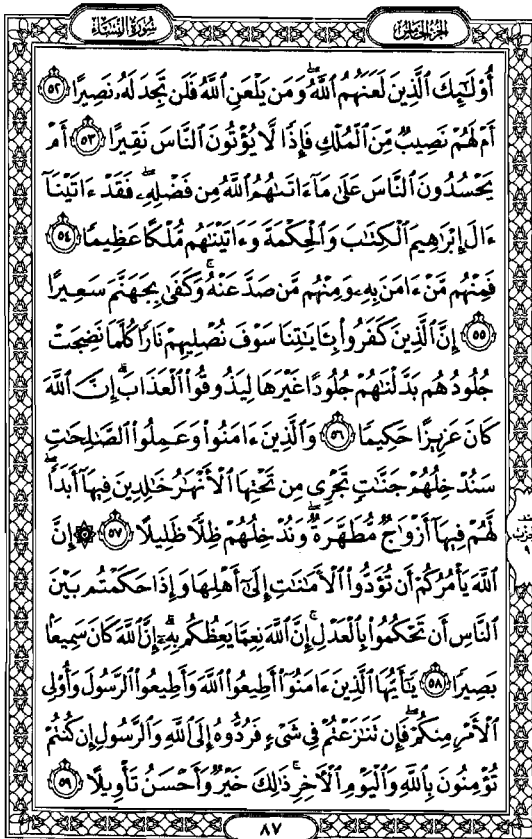 سُورَةُ النِّسَاءِ
الجُزْءُ الخَامِسُ
أُوْلَٰٓئِكَ ٱلَّذِينَ لَعَنَهُمُ ٱللَّهُۖ وَمَن يَلْعَنِ ٱللَّهُ فَلَن تَجِدَ لَهُۥ نَصِيرًا ٥٢
أَمْ لَهُمْ نَصِيبٌ مِّنَ ٱلْمُلْكِ فَإِذًا لَّا يُؤْتُونَ ٱلنَّاسَ نَقِيرًا ٥٣ أَمْ
يَحْسُدُونَ ٱلنَّاسَ عَلَىٰ مَآ ءَاتَىٰهُمُ ٱللَّهُ مِن فَضْلِهِۦۖ فَقَدْ ءَاتَيْنَآ
ءَالَ إِبْرَٰهِيمَ ٱلْكِتَٰبَ وَٱلْحِكْمَةَ وَءَاتَيْنَٰهُم مُّلْكًا عَظِيمًا ٥٤
فَمِنْهُم مَّنْ ءَامَنَ بِهِۦ وَمِنْهُم مَّن صَدَّ عَنْهُۚ وَكَفَىٰ بِجَهَنَّمَ سَعِيرًا
٥٥ إِنَّ ٱلَّذِينَ كَفَرُوا۟ بِـَٔايَٰتِنَا سَوْفَ نُصْلِيهِمْ نَارًا كُلَّمَا نَضِجَتْ
جُلُودُهُم بَدَّلْنَٰهُمْ جُلُودًا غَيْرَهَا لِيَذُوقُوا۟ ٱلْعَذَابَۗ إِنَّ ٱللَّهَ
كَانَ عَزِيزًا حَكِيمًا ٥٦ وَٱلَّذِينَ ءَامَنُوا۟ وَعَمِلُوا۟ ٱلصَّٰلِحَٰتِ
سَنُدْخِلُهُمْ جَنَّٰتٍ تَجْرِى مِن تَحْتِهَا ٱلْأَنْهَٰرُ خَٰلِدِينَ فِيهَآ أَبَدًاۖ
لَّهُمْ فِيهَآ أَزْوَٰجٌ مُّطَهَّرَةٌۖ وَنُدْخِلُهُمْ ظِلًّا ظَلِيلًا ٥٧ ۞ إِنَّ
ٱللَّهَ يَأْمُرُكُمْ أَن تُؤَدُّوا۟ ٱلْأَمَٰنَٰتِ إِلَىٰٓ أَهْلِهَا وَإِذَا حَكَمْتُم بَيْنَ
ٱلنَّاسِ أَن تَحْكُمُوا۟ بِٱلْعَدْلِۚ إِنَّ ٱللَّهَ نِعِمَّا يَعِظُكُم بِهِۦٓۗ إِنَّ ٱللَّهَ كَانَ سَمِيعًۢا
بَصِيرًا ٥٨ يَٰٓأَيُّهَا ٱلَّذِينَ ءَامَنُوٓا۟ أَطِيعُوا۟ ٱللَّهَ وَأَطِيعُوا۟ ٱلرَّسُولَ وَأُو۟لِى
ٱلْأَمْرِ مِنكُمْۖ فَإِن تَنَٰزَعْتُمْ فِى شَىْءٍ فَرُدُّوهُ إِلَى ٱللَّهِ وَٱلرَّسُولِ إِن كُنتُمْ
تُؤْمِنُونَ بِٱللَّهِ وَٱلْيَوْمِ ٱلْءَاخِرِۚ ذَٰلِكَ خَيْرٌ وَأَحْسَنُ تَأْوِيلًا ٥٩
٨٧